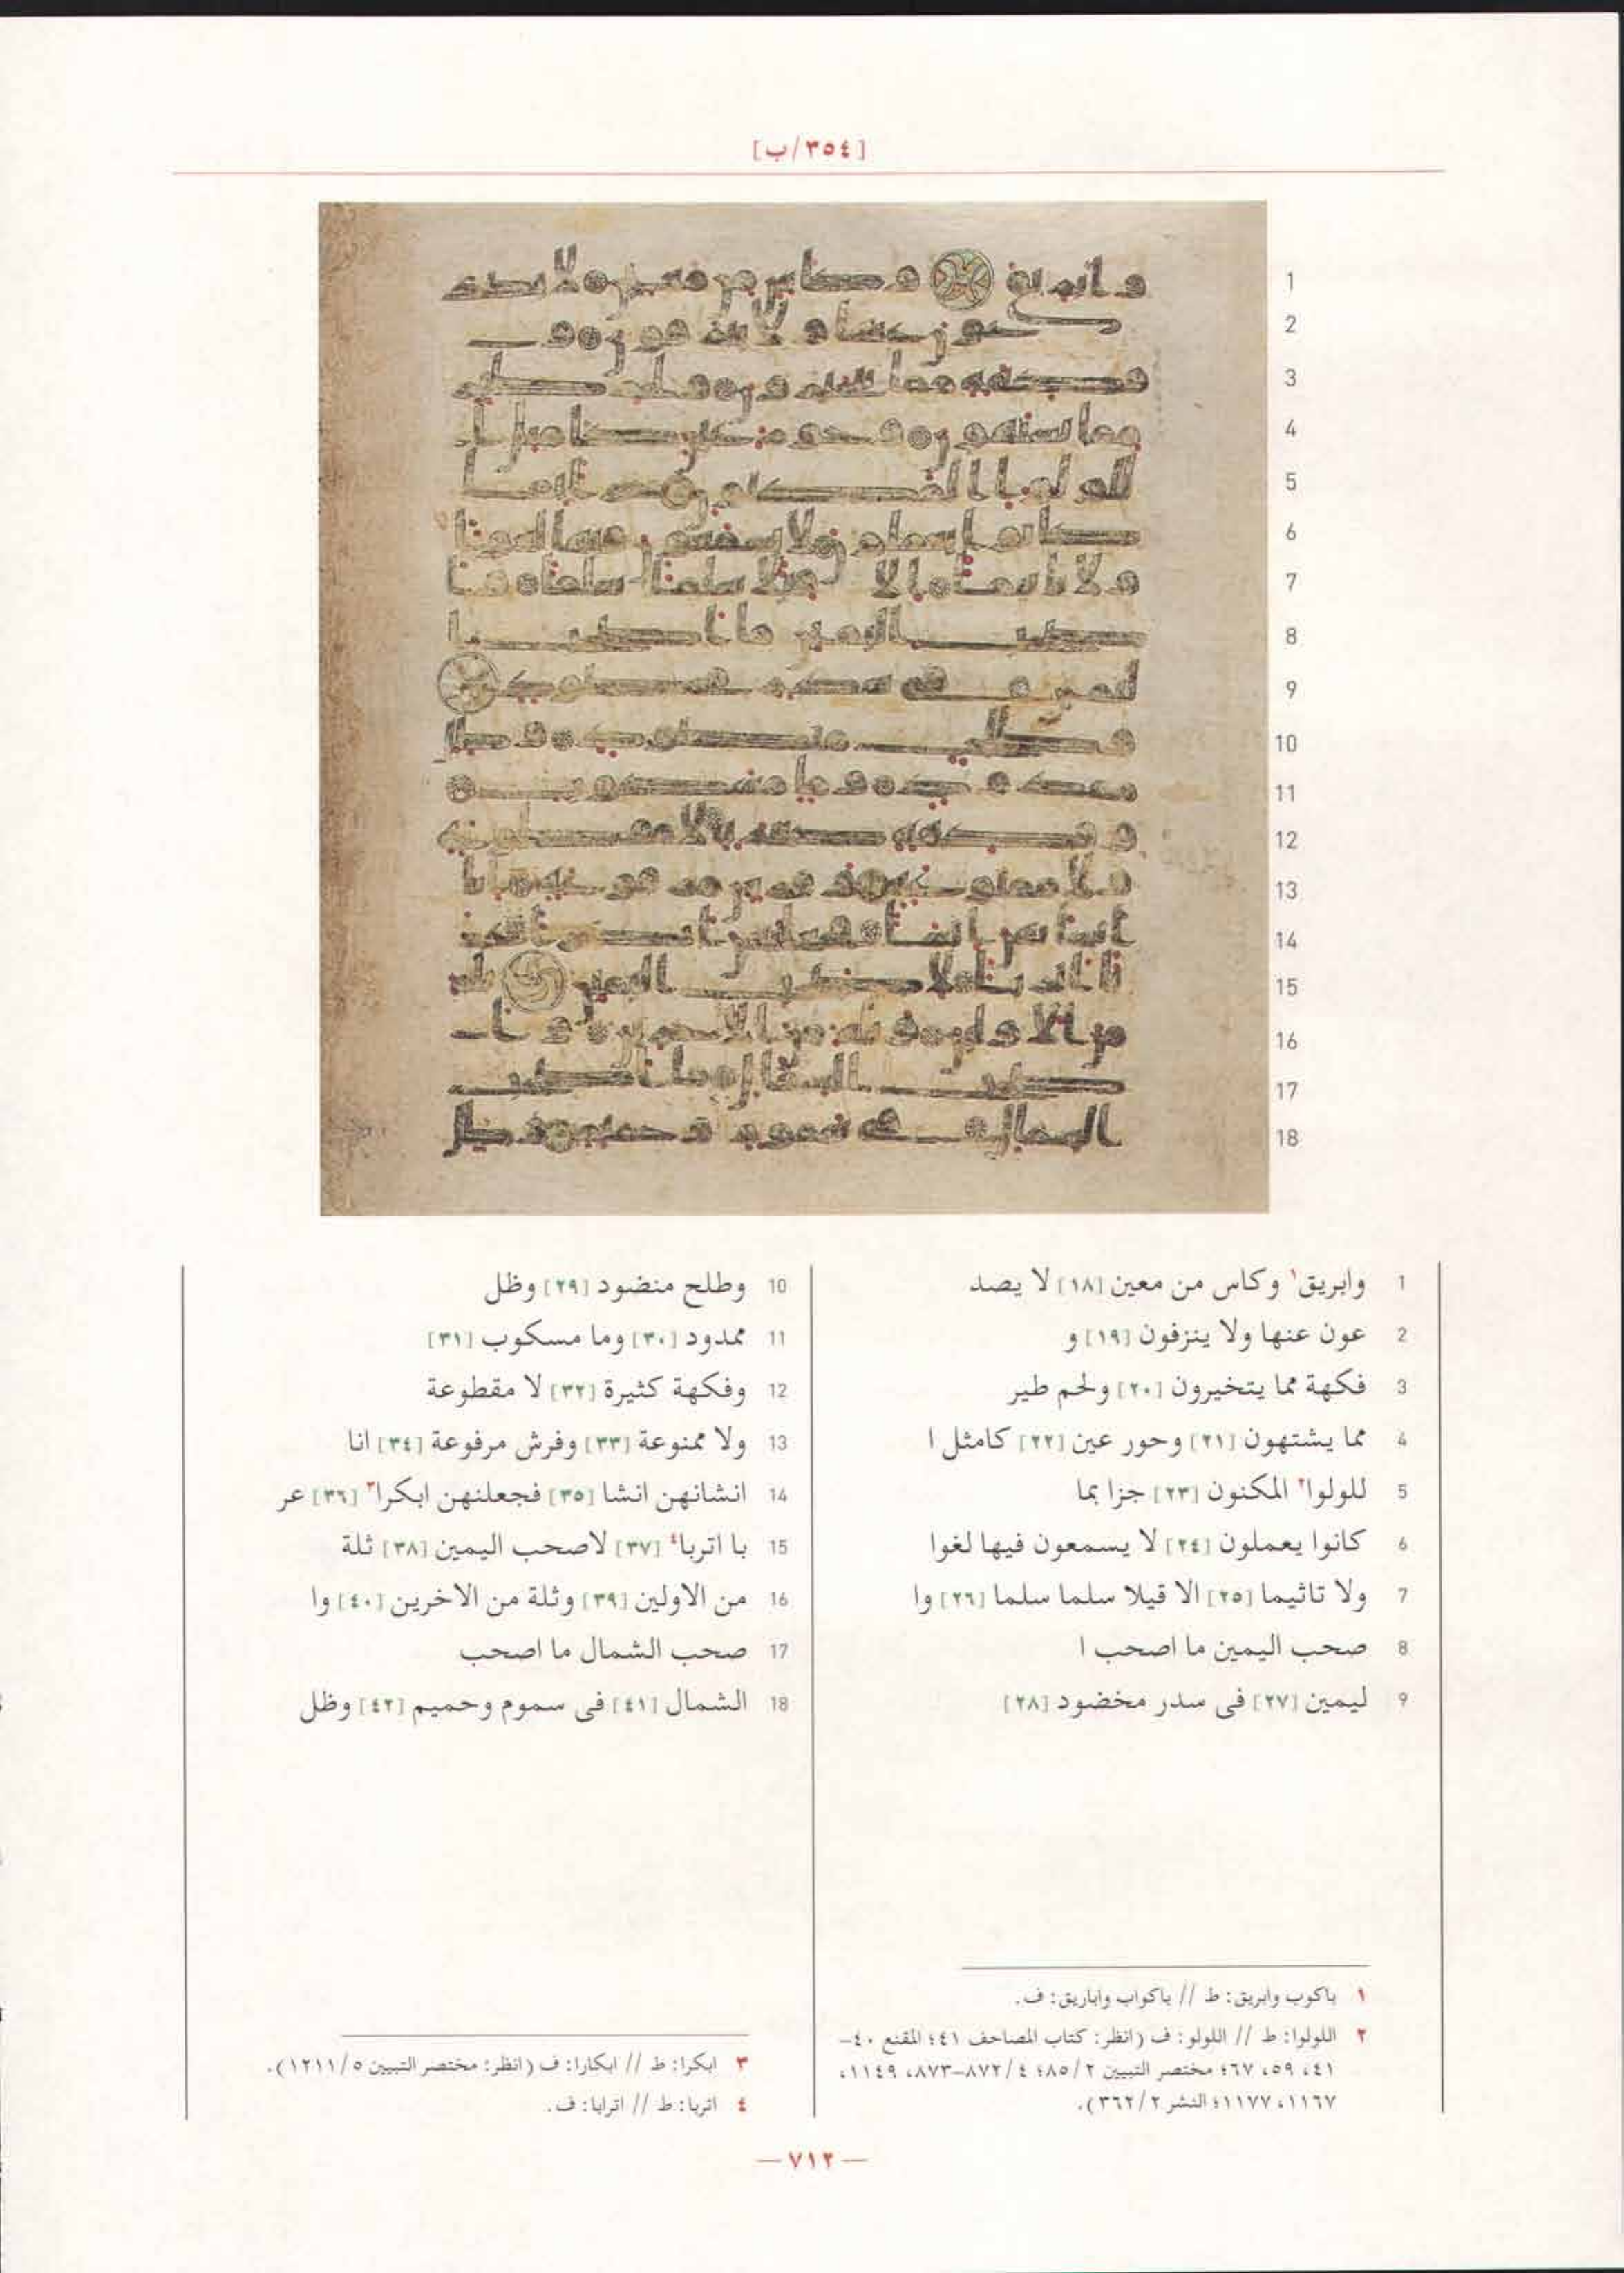 [٣٥٤/ب]
1
2
3
4
5
6
7
8
9
10
11
12
13
14
15
16
17
18
1 وابريق١ وكاس من معين [١٨] لا يصد
2 عون عنها ولا ينزفون [١٩] و
3 فكهة مما يتخيرون [٢٠] ولحم طير
4 مما يشتهون [٢١] وحور عين [٢٢] كامثل ا
5 للولوا٢ المكنون [٢٣] جزا بما
6 كانوا يعملون [٢٤] لا يسمعون فيها لغوا
7 ولا تاثيما [٢٥] الا قيلا سلما سلما [٢٦] وا
8 صحب اليمين ما اصحب ا
9 ليمين [٢٧] فى سدر مخضود [٢٨]
10 وطلح منضود [٢٩] وظل
11 ممدود [٣٠] وما مسكوب [٣١]
12 وفكهة كثيرة [٣٢] لا مقطوعة
13 ولا ممنوعة [٣٣] وفرش مرفوعة [٣٤] انا
14 انشانهن انشا [٣٥] فجعلنهن ابكرا٣ [٣٦] عر
15 با اتربا٤ [٣٧] لاصحب اليمين [٣٨] ثلة
16 من الاولين [٣٩] وثلة من الاخرين [٤٠] وا
17 صحب الشمال ما اصحب
18 الشمال [٤١] فى سموم وحميم [٤٢] وظل
١ باكوب وابريق: ط // باكواب واباريق: ف.
٢ اللولوا: ط // اللولو: ف (انظر: كتاب المصاحف ٤١؛ المقنع ٤٠-
٤١، ٥٩، ٦٧؛ مختصر التبيين ٢/٨٥؛ ٤/٨٧٢-٨٧٣، ١١٤٩،
١١٦٧، ١١٧٧؛ النشر ٢/٣٦٢).
٣ ابكرا: ط // ابكارا: ف (انظر: مختصر التبيين ٥/١٢١١).
٤ اتربا: ط // اترابا: ف.
— ٧١٢ —